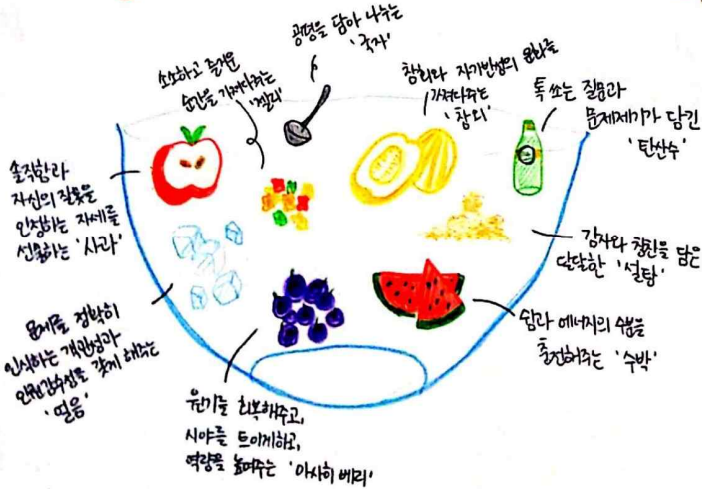 공평을 담아 나누는
'국자'
소소하고 즐거운
순간을 가져다주는
'젤리'
참회와 자기반성의 문화를
가져다주는
'참외'
톡 쏘는 질문과
문제제기가 담긴
'탄산수'
솔직함과
자신의 잘못을
인정하는 자세를
선물하는 '사과'
감사와 칭찬을 담은
달달한 '설탕'
문제를 정확히
인식하는 객관성과
인권감수성을 갖게 해주는
'얼음'
쉼과 에너지의 수분을
충전해주는 '수박'
원기를 회복해주고,
시야를 트이게하고,
역량을 높여주는 '아사히 베리'